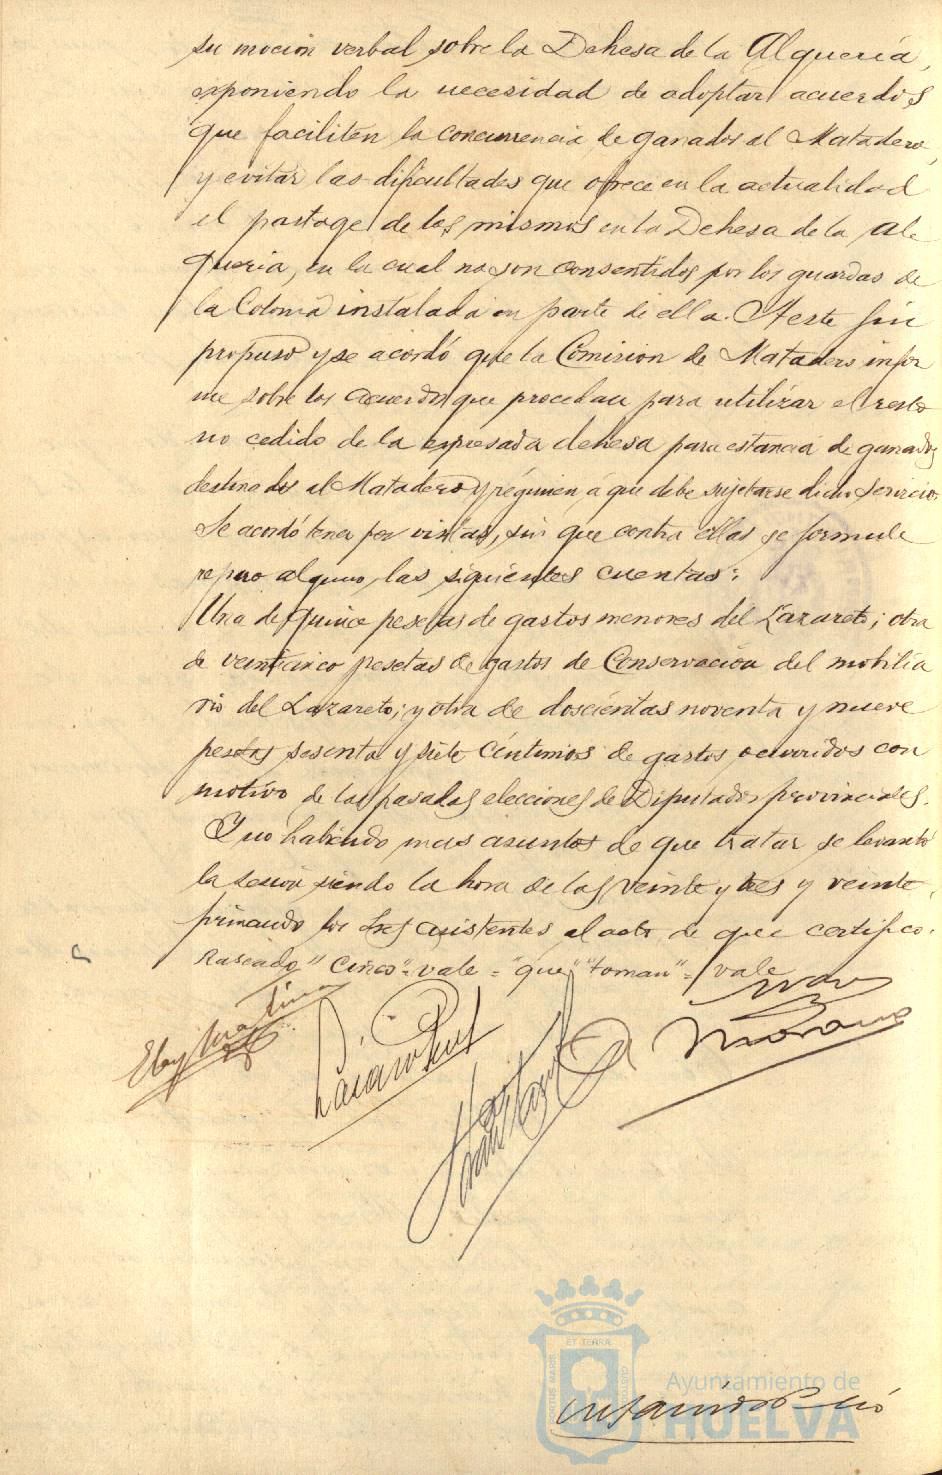 su moción verbal sobre la Dehesa de la Alquería,
exponiendo la necesidad de adoptar acuerdos
que faciliten la concurrencia de ganados al Matadero,
y evitar las dificultades que ofrece en la actualidad
el pastage de los mismos en la Dehesa de la Al
quería, en la cual no son consentidos por los guardas de
la Colonia instalada en parte de ella. A este fin
propuso y se acordó que la Comision de Matadero infor
me sobre los acuerdos que procedan para utilizar el resto
no cedido de la expresada dehesa para estancia de ganados
destinados al Matadero y régimen á que debe sujetarse dicho servicio.
Se acordó tener por vistas, sin que contra ellas se formule
reparo alguno, las siguientes cuentas:
Una de quince pesetas de gastos menores del Lazareto; otra
de veinticinco pesetas de gastos de Conservación del mobilia
rio del Lazareto; y otra de doscientas noventa y nueve
pesetas sesenta y siete céntimos de gastos ocurridos con
motivo de las pasadas elecciones de Diputados provinciales.
Y no habiendo mas asuntos de que tratar se levantó
la sesión siendo la hora de las veinte y tres y veinte,
firmando los Sres asistentes al acto de que certifico.
Raspado "cinco" = vale = "que" "toman" = vale
Moreno
ET TERRA
PORTUS MARIS
CUSTODIA
Ayuntamiento de
HUELVA